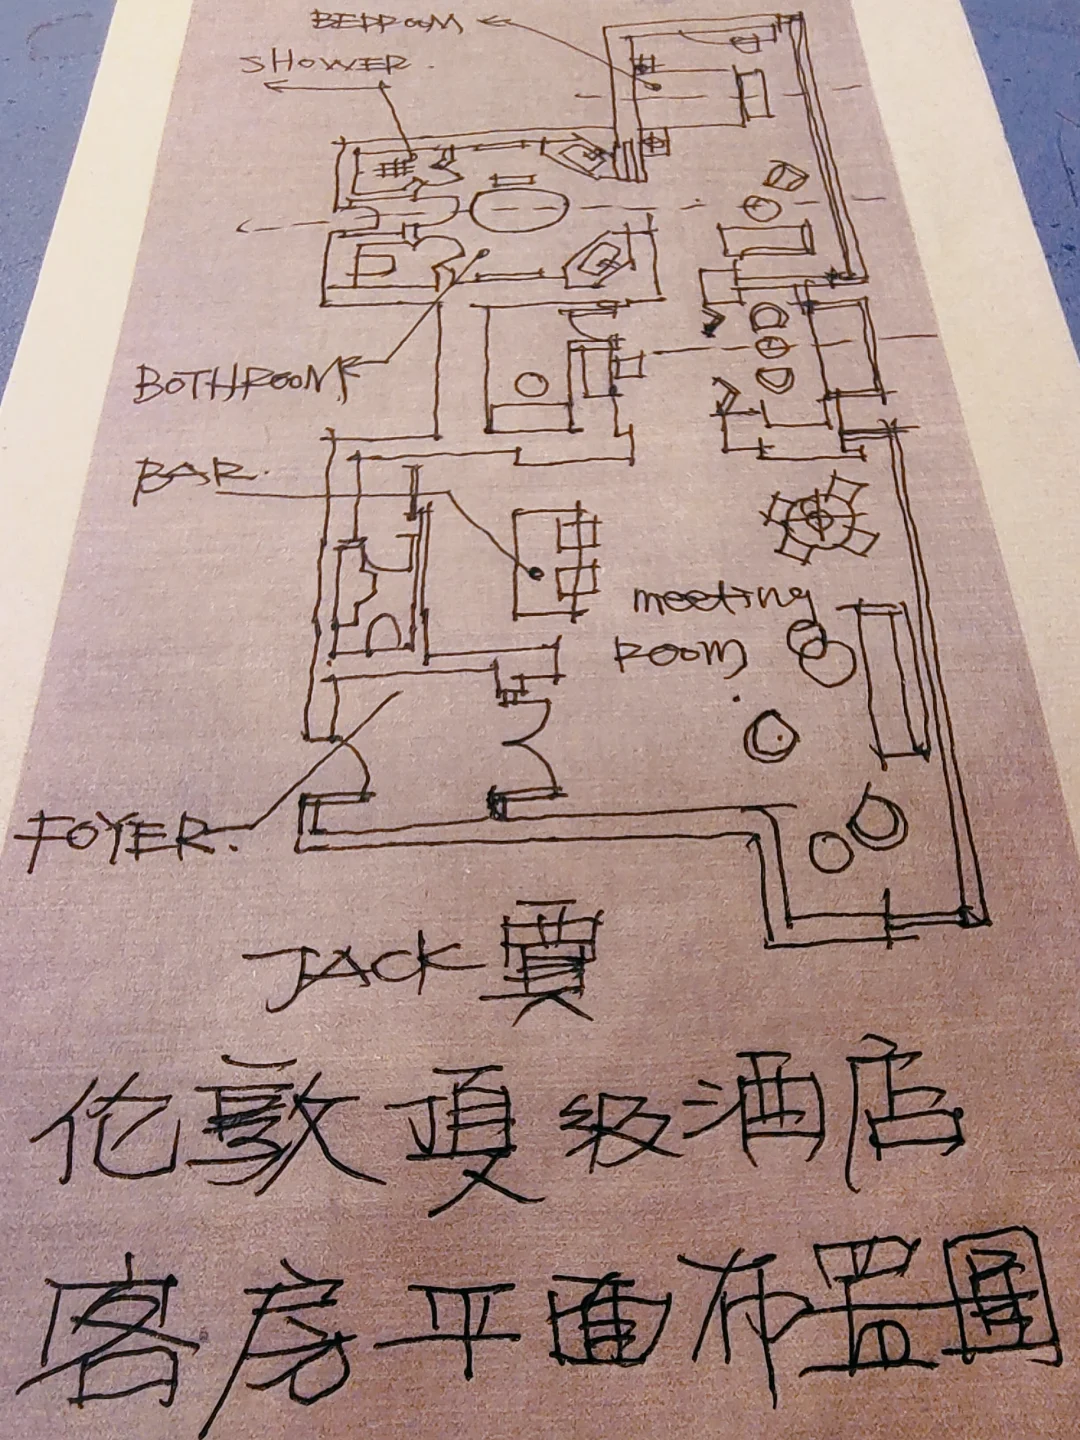 BEDROOM
SHOWER.
BOTHROOM
BAR.
meeting
ROOM.
FOYER.
JACK賈
伦敦頂级酒店
客房平面布置圖